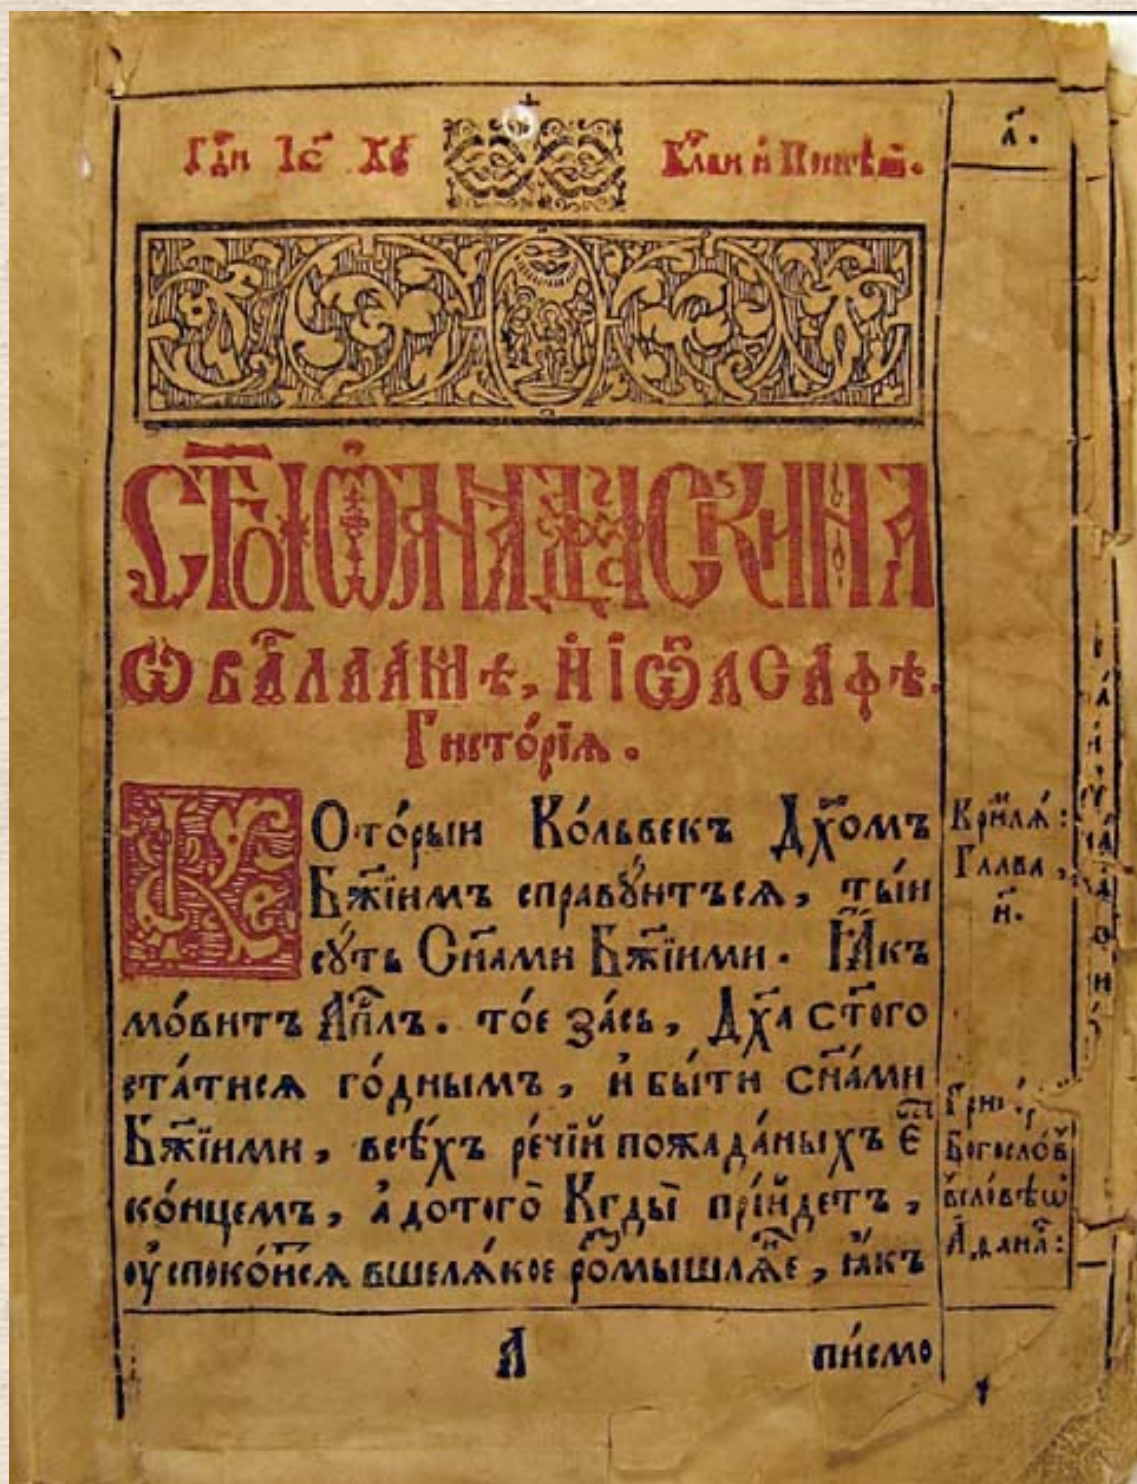 Гд҃и Іс҃ Хе҃ Бл҃ви и Поспѣш.
л҃.
СТ҃ГО ІѠАННА ДАМАСКИНА
Ѡ ВАРЛААМѢ, И ІѠАСАФѢ.
Гисто́рїѧ.
КОто́рыи Ко́львекъ Дх҃омъ
Бж҃їимъ справу́нтъсѧ, ты́и
су́ть Сн҃ами Бж҃їими. Ꙗкъ
мо́витъ Ап҃лъ. то́е за́сь, Дх҃а ст҃ого
ста́тисѧ го́днымъ, и бы́ти Сн҃а́ми
Бж҃їими, всѣ́хъ рѣ́чїй пожада́ныхъ Є҆ст
ко́нцемъ, а до того̀ Кгды̀ прі́йдетъ,
оу҆споко́итсѧ вшелѧ́кое ро́змышлѧ́нїе, ꙗ́къ
А
пи́смо
Кри́млѧ:
Глава,
и҃.
Григо́р
Богосло́в
Аѳана: